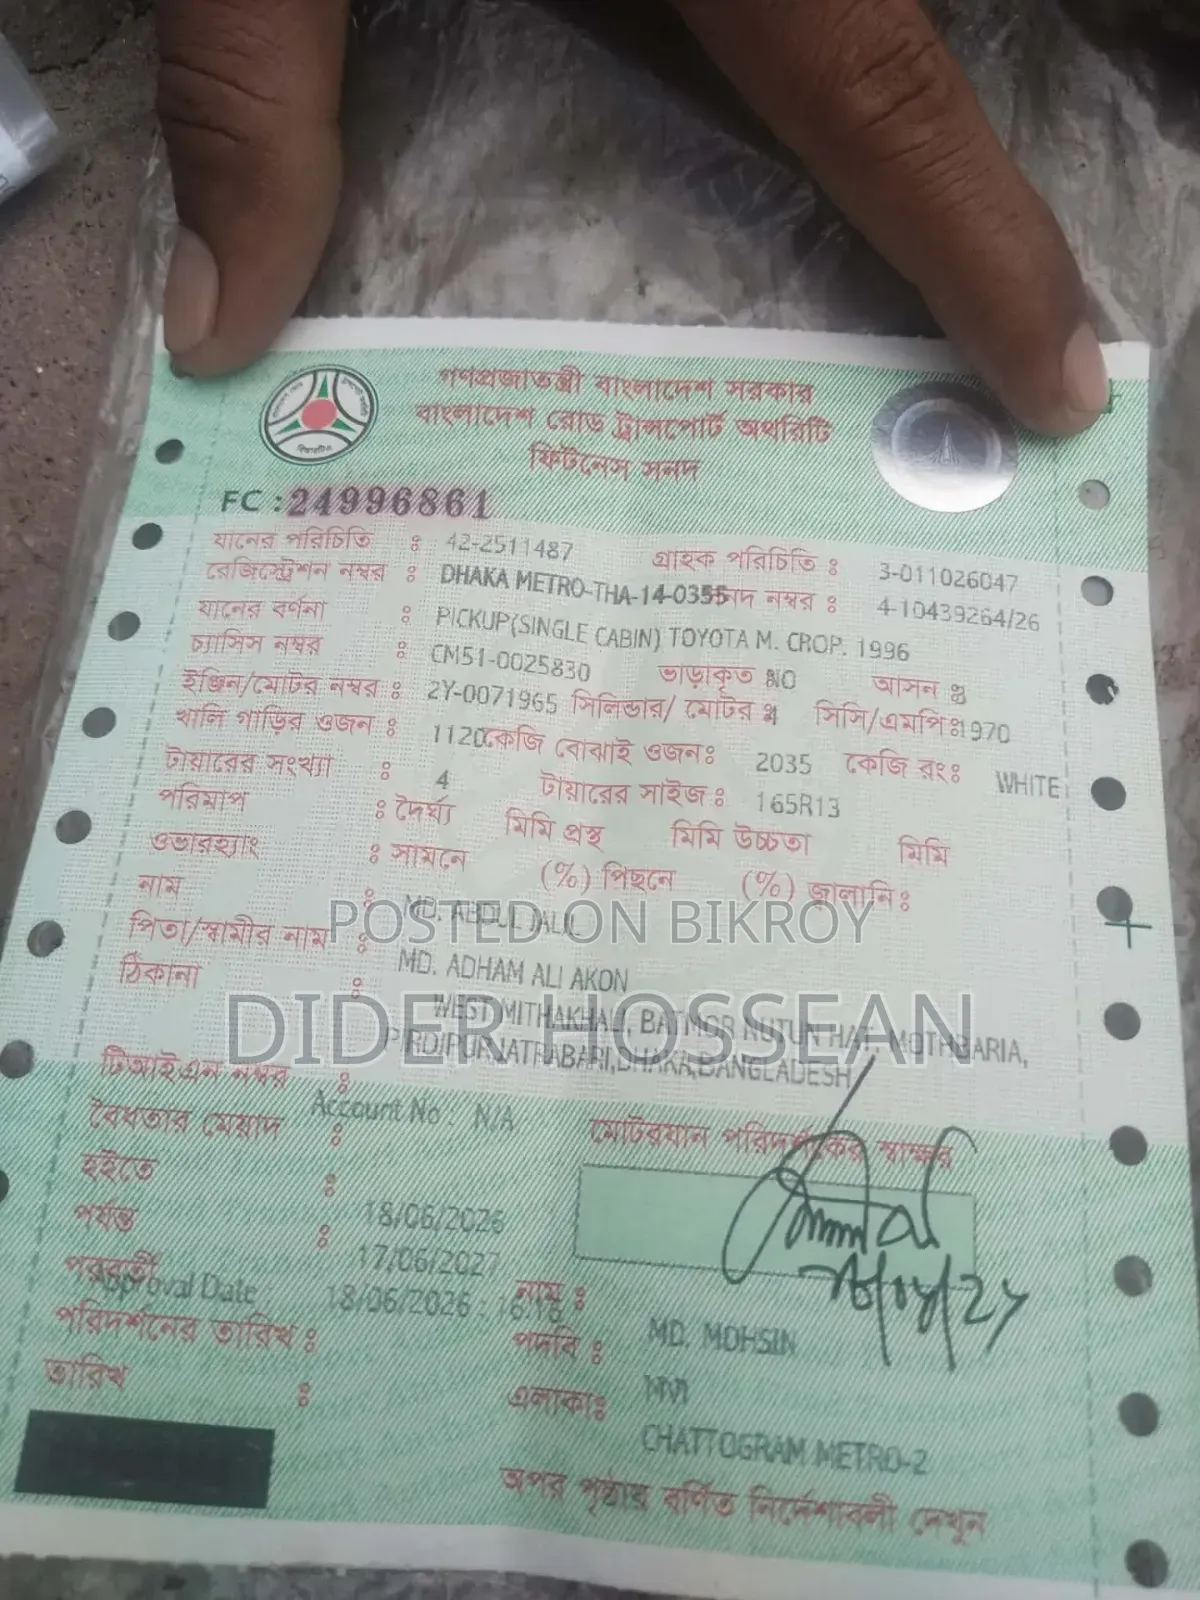 গণপ্রজাতন্ত্রী বাংলাদেশ সরকার
বাংলাদেশ রোড ট্রান্সপোর্ট অথরিটি
ফিটনেস সনদ
FC : 24996861
যানের পরিচিতি : 42-2511487 গ্রাহক পরিচিতি : 3-011026047
রেজিস্ট্রেশন নম্বর : DHAKA METRO-THA-14-0355 সনদ নম্বর : 4-10439264/26
যানের বর্ণনা : PICKUP(SINGLE CABIN) TOYOTA M. CROP. 1996
চ্যাসিস নম্বর : CM51-0025830 ভাড়াকৃত NO আসন : 3
ইঞ্জিন/মোটর নম্বর : 2Y-0071965 সিলিন্ডার/ মোটর : 4 সিসি/এমপি : 1970
খালি গাড়ির ওজন : 1120 কেজি বোঝাই ওজন : 2035 কেজি রং : WHITE
টায়ারের সংখ্যা : 4 টায়ারের সাইজ : 165R13
পরিমাপ : দৈর্ঘ্য মিমি প্রস্থ মিমি উচ্চতা মিমি
ওভারহ্যাং : সামনে (%) পিছনে (%) জ্বালানি :
নাম : MD. ABDUL JALIL
POSTED ON BIKROY
পিতা/স্বামীর নাম : MD. ADHAM ALI AKON
DIDER HOSSEAN
ঠিকানা : WEST MITHAKHALI, BATMOR NUTUN HAT, MOTHBARIA,
PIROJPUR, JATRABARI, DHAKA, BANGLADESH
টিআইএন নম্বর :
Account No : N/A
বৈধতার মেয়াদ : মোটরযান পরিদর্শকের স্বাক্ষর
হইতে : 18/06/2026
পর্যন্ত : 17/06/2027
পরবর্তী নাম :
Approval Date 18/06/2026 : 16:18
পরিদর্শনের তারিখ : পদবি : MD. MOHSIN
তারিখ : এলাকা : MVI
CHATTOGRAM METRO-2
অপর পৃষ্ঠায় বর্ণিত নির্দেশাবলী দেখুন